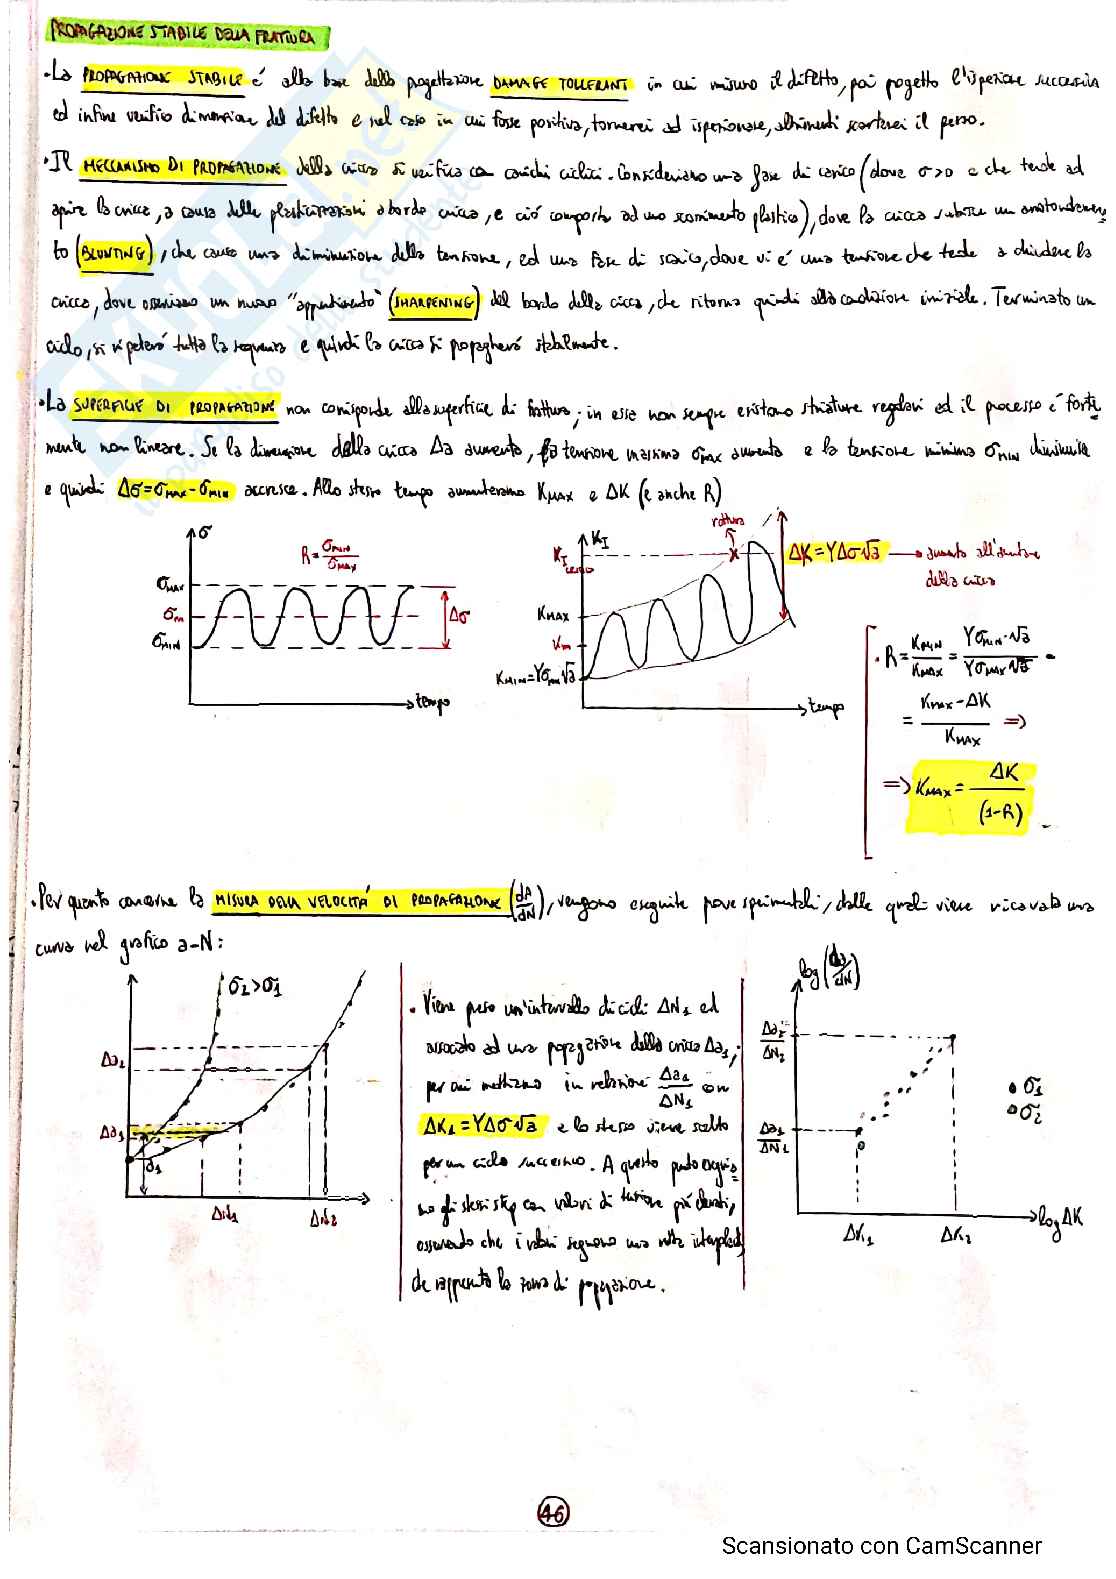 PROPAGAZIONE STABILE DELLA FRATTURA
• La PROPAGAZIONE STABILE é alla base della progettazione DAMAGE TOLLERANT in cui misuro il difetto, poi progetto l'ispezione successiva
ed infine verifico dimensione del difetto e nel caso in cui fosse positiva, tornerei ad ispezionare, altrimenti scarterei il pezzo.
• Il MECCANISMO DI PROPAGAZIONE della cricca si verifica con carichi ciclici. Consideriamo una fase di carico (dove σ>0 e che tende ad
aprire la cricca, a causa delle plasticizzazioni a bordo cricca, e ció comporta ad uno scorrimento plastico), dove la cricca subisce un arrotondamen-
to (BLUNTING), che causa una diminuzione della tensione, ed una fase di scarico, dove vi é una tensione che tende a chiudere la
cricca, dove osserviamo un nuovo "appuntimento" (SHARPENING) del bordo della cricca, che ritorna quindi alla condizione iniziale. Terminato un
ciclo, si ripeterá tutta la sequenza e quindi la cricca si propagherá stabilmente.
• La SUPERFICIE DI PROPAGAZIONE non corrisponde alla superficie di frattura; in essa non sempre esistono striature regolari ed il processo é forte-
mente non lineare. Se la dimensione della cricca Δa aumenta, la tensione massima σMAX aumenta e la tensione minima σMIN diminuisce
e quindi Δσ=σMAX-σMIN accresce. Allo stesso tempo aumenteranno KMAX e ΔK (e anche R)
σ
R=σMIN/σMAX
σMAX
σm
σMIN
Δσ
tempo
KI
rottura
KI
KMAX
Km
KMIN=Yσmin√a
tempo
ΔK=YΔσ√a → aumenta all'aumentare
della cricca
• R=KMIN/KMAX=YσMIN·√a/YσMAX√a =
= KMAX-ΔK/KMAX =>
=> KMAX=ΔK/(1-R)
• Per quanto concerne la MISURA DELLA VELOCITÁ DI PROPAGAZIONE (dA/dN), vengono eseguite prove sperimentali, dalle quali viene ricavata una
curva nel grafico a-N:
σ2>σ1
Δa2
Δa1
a1
ΔN1
ΔN2
• Viene preso un'intervallo di cicli ΔN1 ed
associato ad una propagazione della cricca Δa1,
per cui mettiamo in relazione Δa1/ΔN1 con
ΔK1=YΔσ√a e lo stesso viene svolto
per un ciclo successivo. A questo punto eseguia-
mo gli stessi step con valori di tensione piú elevati,
osservando che i valori seguono una retta
che rappresenta la zona di propagazione.
log(da/dN)
Δa2/ΔN2
Δa1/ΔN1
• σ1
• σ2
ΔK1
ΔK2
logΔK
46
Scansionato con CamScanner